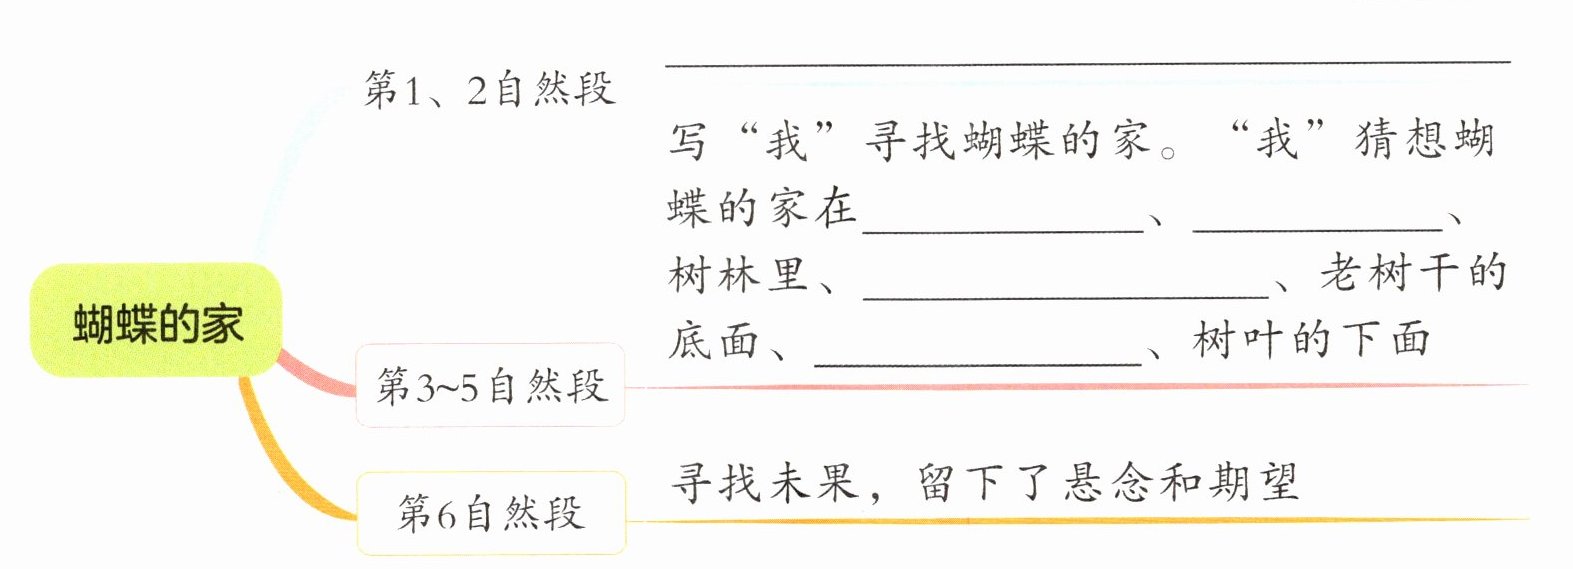 第1、2自然段
写“我”寻找蝴蝶的家。“我”猜想蝴
蝶的家在____________、____________、
树林里、____________、老树干的
底面、____________、树叶的下面
蝴蝶的家
第3~5自然段
寻找未果，留下了悬念和期望
第6自然段